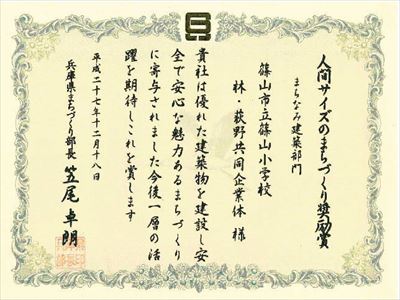 人間サイズのまちづくり奨励賞
まちなみ建築部門
篠山市立篠山小学校
林・荻野共同企業体 様
貴社は優れた建築物を建設し安
全で安心な魅力あるまちづくり
に寄与されました今後一層の活
躍を期待しこれを賞します
平成二十七年十二月十八日
兵庫県まちづくり部長 笠尾卓朗